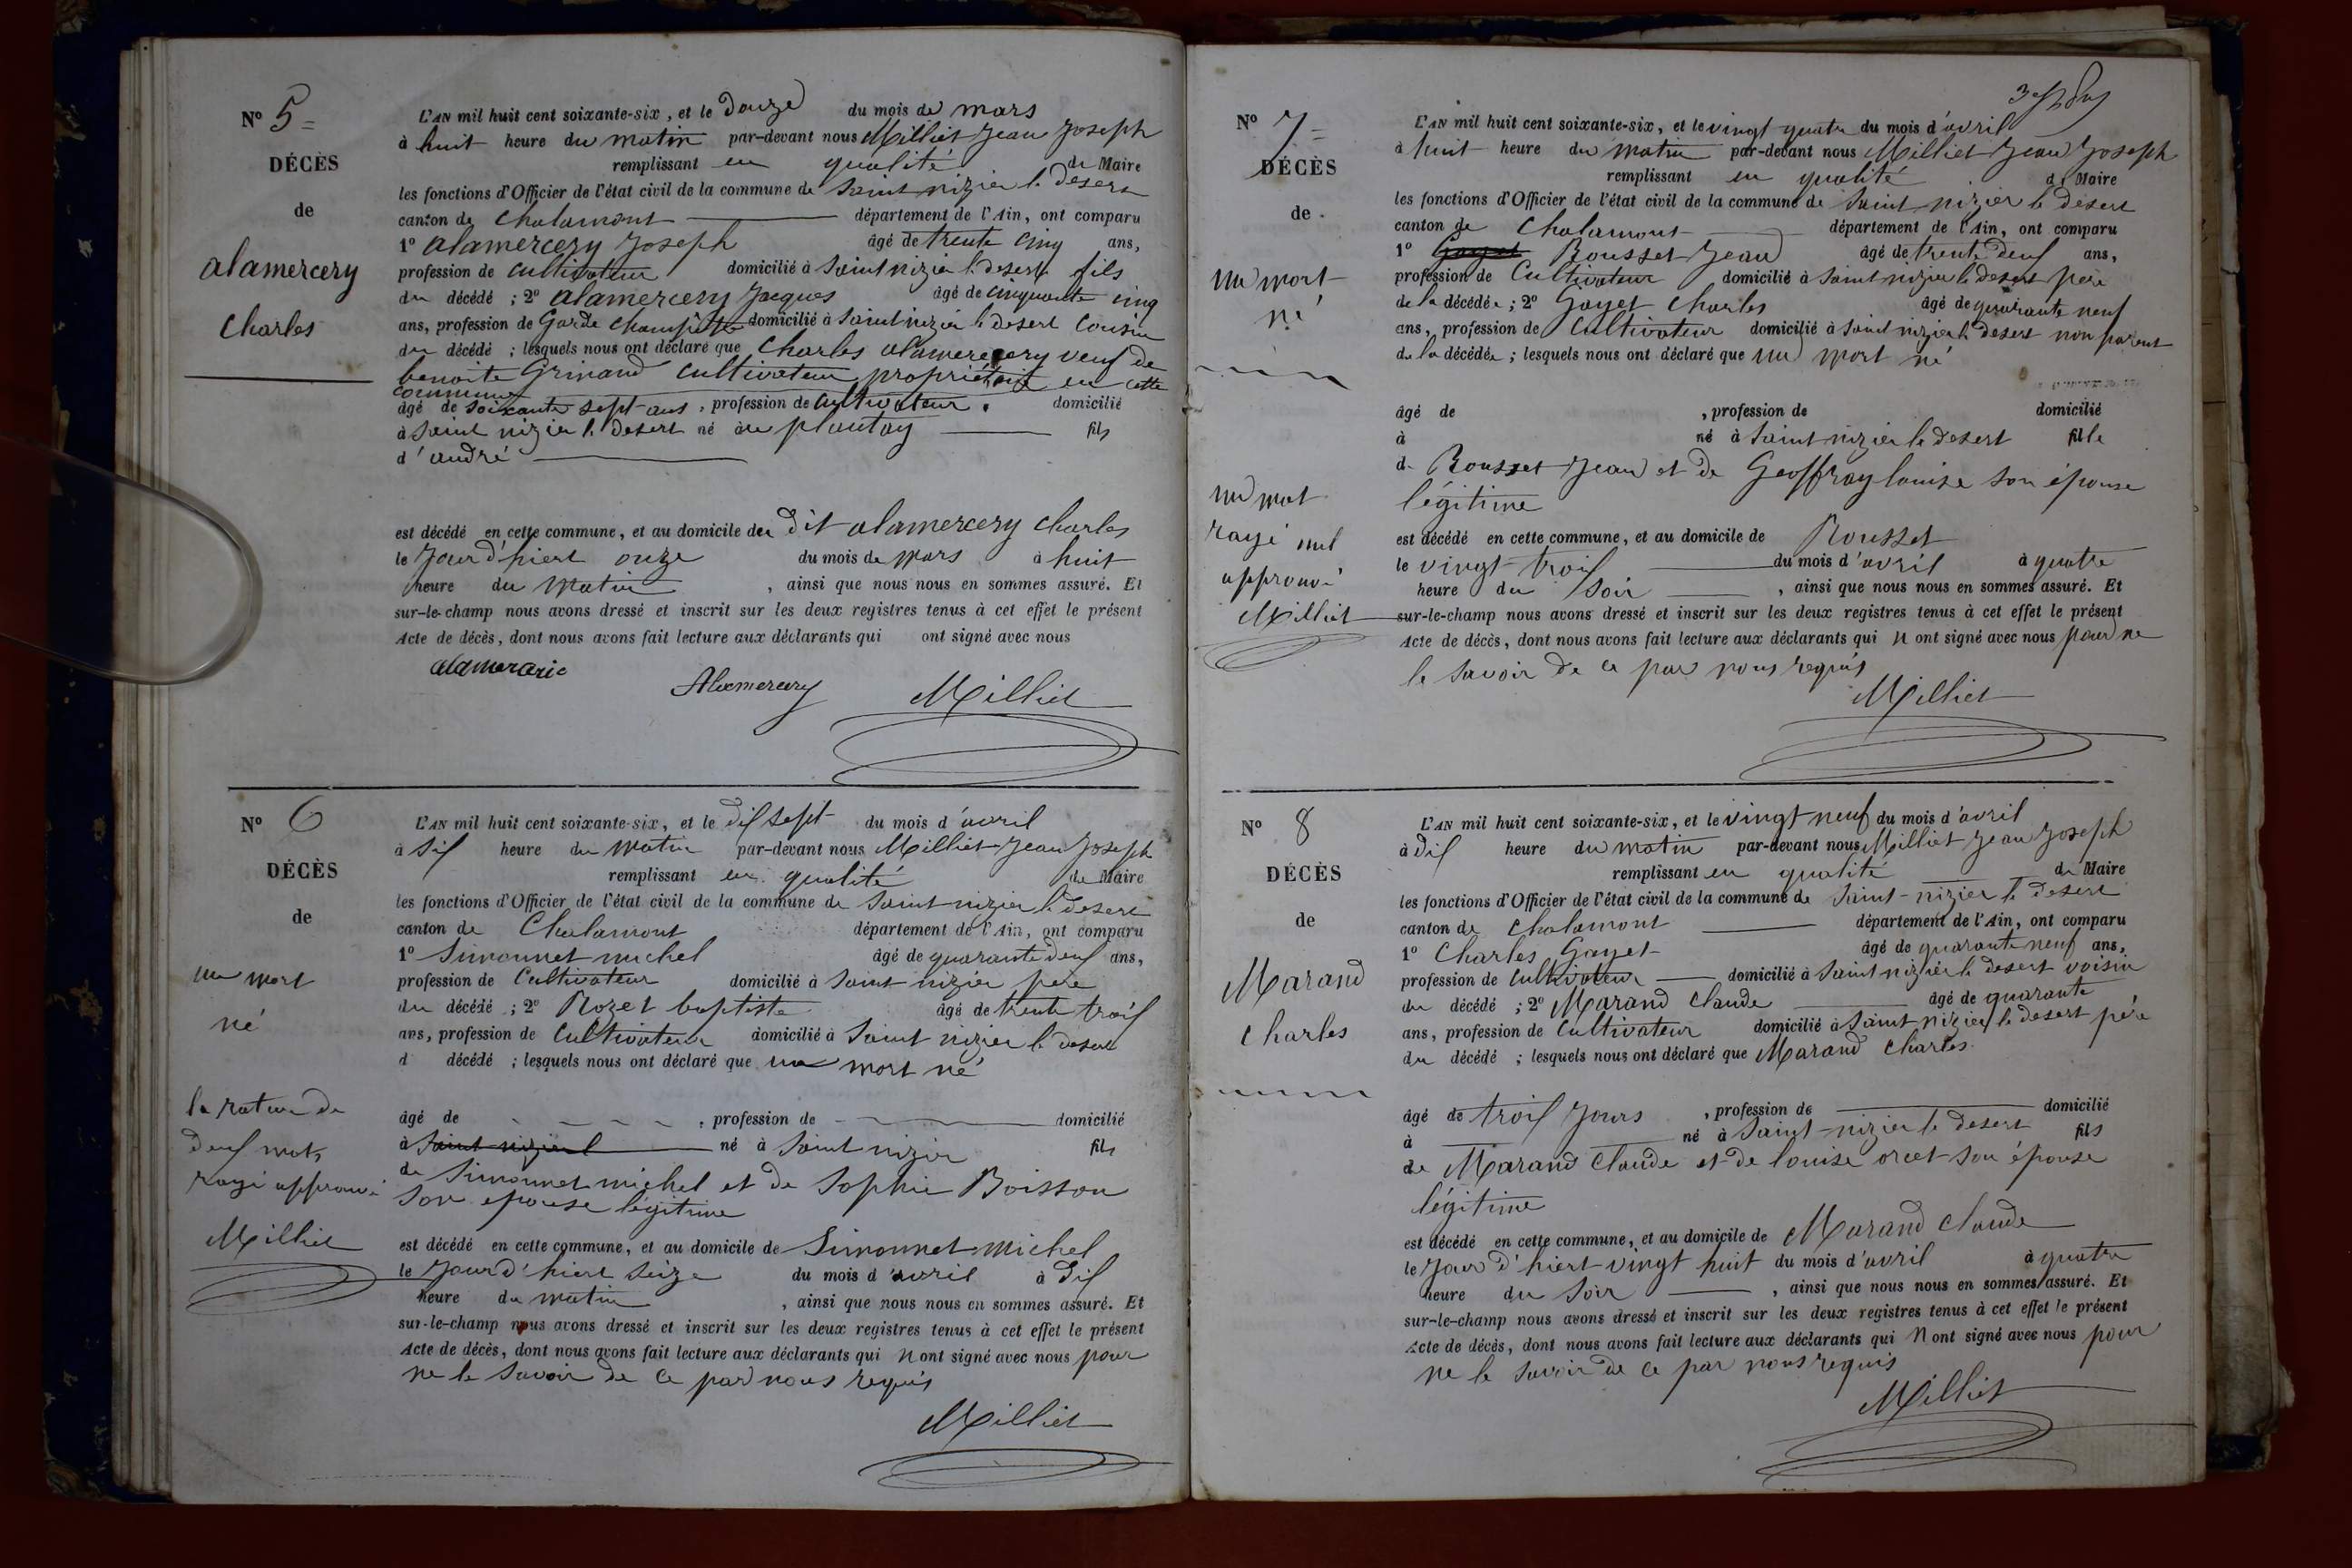 N° 5=
DÉCÈS
de
alamercery
Charles
L'AN mil huit cent soixante-six, et le douze du mois de mars
à huit heure du matin par-devant nous Milliet Jean Joseph
remplissant en qualité de Maire
les fonctions d'Officier de l'état civil de la commune de Saint nizier le desert
canton de Chalamont département de l'Ain, ont comparu
1° alamercery Joseph âgé de trente cinq ans,
profession de cultivateur domicilié à Saint nizier le desert fils
du décédé ; 2° alamercery Jacques âgé de cinquante cinq
ans, profession de Garde Champêtre domicilié à Saint nizier le desert Cousin
du décédé ; lesquels nous ont déclaré que Charles alamercery veuf de
benoite Grinand cultivateur propriétaire en cette
commune
âgé de soixante sept ans, profession de cultivateur. domicilié
à Saint nizier le desert né au plantay fils
d'andré
est décédé en cette commune, et au domicile du dit alamercery Charles
le Jour d'hiert onze du mois de mars à huit
heure du matin, ainsi que nous nous en sommes assuré. Et
sur-le-champ nous avons dressé et inscrit sur les deux registres tenus à cet effet le présent
Acte de décès, dont nous avons fait lecture aux déclarants qui ont signé avec nous
alamercery Milliet
N° 6
DÉCÈS
de
un mort
né
la rature de
deux mots
rayé approuvé
Milliet
L'AN mil huit cent soixante-six, et le dix sept du mois d'avril
à Six heure du matin par-devant nous Milliet Jean Joseph
remplissant en qualité de Maire
les fonctions d'Officier de l'état civil de la commune de Saint nizier le desert
canton de Chalamont département de l'Ain, ont comparu
1° Simonnet michel âgé de quarante deux ans,
profession de Cultivateur domicilié à Saint nizier père
du décédé ; 2° Rozet baptiste âgé de trente trois
ans, profession de Cultivateur domicilié à Saint nizier le desert
d décédé ; lesquels nous ont déclaré que un mort né
âgé de , profession de domicilié
à Saint nizier l né à Saint nizier fils
de Simonnet michel et de Sophie Boisson
son epouse légitime
est décédé en cette commune, et au domicile de Simonnet michel
le Jour d'hiert Seize du mois d'avril à Dix
heure du matin, ainsi que nous nous en sommes assuré. Et
sur-le-champ nous avons dressé et inscrit sur les deux registres tenus à cet effet le présent
Acte de décès, dont nous avons fait lecture aux déclarants qui n ont signé avec nous pour
ne le Savoir de ce par nous requis
Milliet
N° 7=
DÉCÈS
de
un mort
né
un mot
rayé nul
approuvé
Milliet
L'AN mil huit cent soixante-six, et le vingt quatre du mois d'avril
à huit heure du matin par-devant nous Milliet Jean Joseph
remplissant en qualité de Maire
les fonctions d'Officier de l'état civil de la commune de Saint nizier le desert
canton de Chalamont département de l'Ain, ont comparu
1° Gayet Rousset Jean âgé de trente deux ans,
profession de Cultivateur domicilié à Saint nizier le desert père
de la décédée ; 2° Gayet Charles âgé de quarante neuf
ans, profession de Cultivateur domicilié à Saint nizier le desert non parent
de la décédée ; lesquels nous ont déclaré que un mort né
âgé de , profession de domicilié
à né à Saint nizier le desert fille
de Rousset Jean et de Geoffray louise son épouse
légitime
est décédé en cette commune, et au domicile de Rousset
le vingt trois du mois d'avril à quatre
heure du Soir, ainsi que nous nous en sommes assuré. Et
sur-le-champ nous avons dressé et inscrit sur les deux registres tenus à cet effet le présent
Acte de décès, dont nous avons fait lecture aux déclarants qui n ont signé avec nous pour ne
le Savoir de ce par nous requis
Milliet
N° 8
DÉCÈS
de
Marand
Charles
L'AN mil huit cent soixante-six, et le vingt neuf du mois d'avril
à dix heure du matin par-devant nous Milliet Jean Joseph
remplissant en qualité de Maire
les fonctions d'Officier de l'état civil de la commune de Saint-nizier le desert
canton de Chalamont département de l'Ain, ont comparu
1° Charles Gayet âgé de quarante neuf ans,
profession de Cultivateur domicilié à Saint nizier le desert voisin
du décédé ; 2° Marand Claude âgé de quarante
ans, profession de Cultivateur domicilié à Saint nizier le desert père
du décédé ; lesquels nous ont déclaré que Marand Charles
âgé de trois Jours, profession de domicilié
à né à Saint-nizier le desert fils
de Marand Claude et de louise orcet son épouse
légitime
est décédé en cette commune, et au domicile de Marand Claude
le Jour d'hiert vingt huit du mois d'avril à quatre
heure du Soir, ainsi que nous nous en sommes assuré. Et
sur-le-champ nous avons dressé et inscrit sur les deux registres tenus à cet effet le présent
Acte de décès, dont nous avons fait lecture aux déclarants qui n ont signé avec nous pour
ne le Savoir de ce par nous requis
Milliet